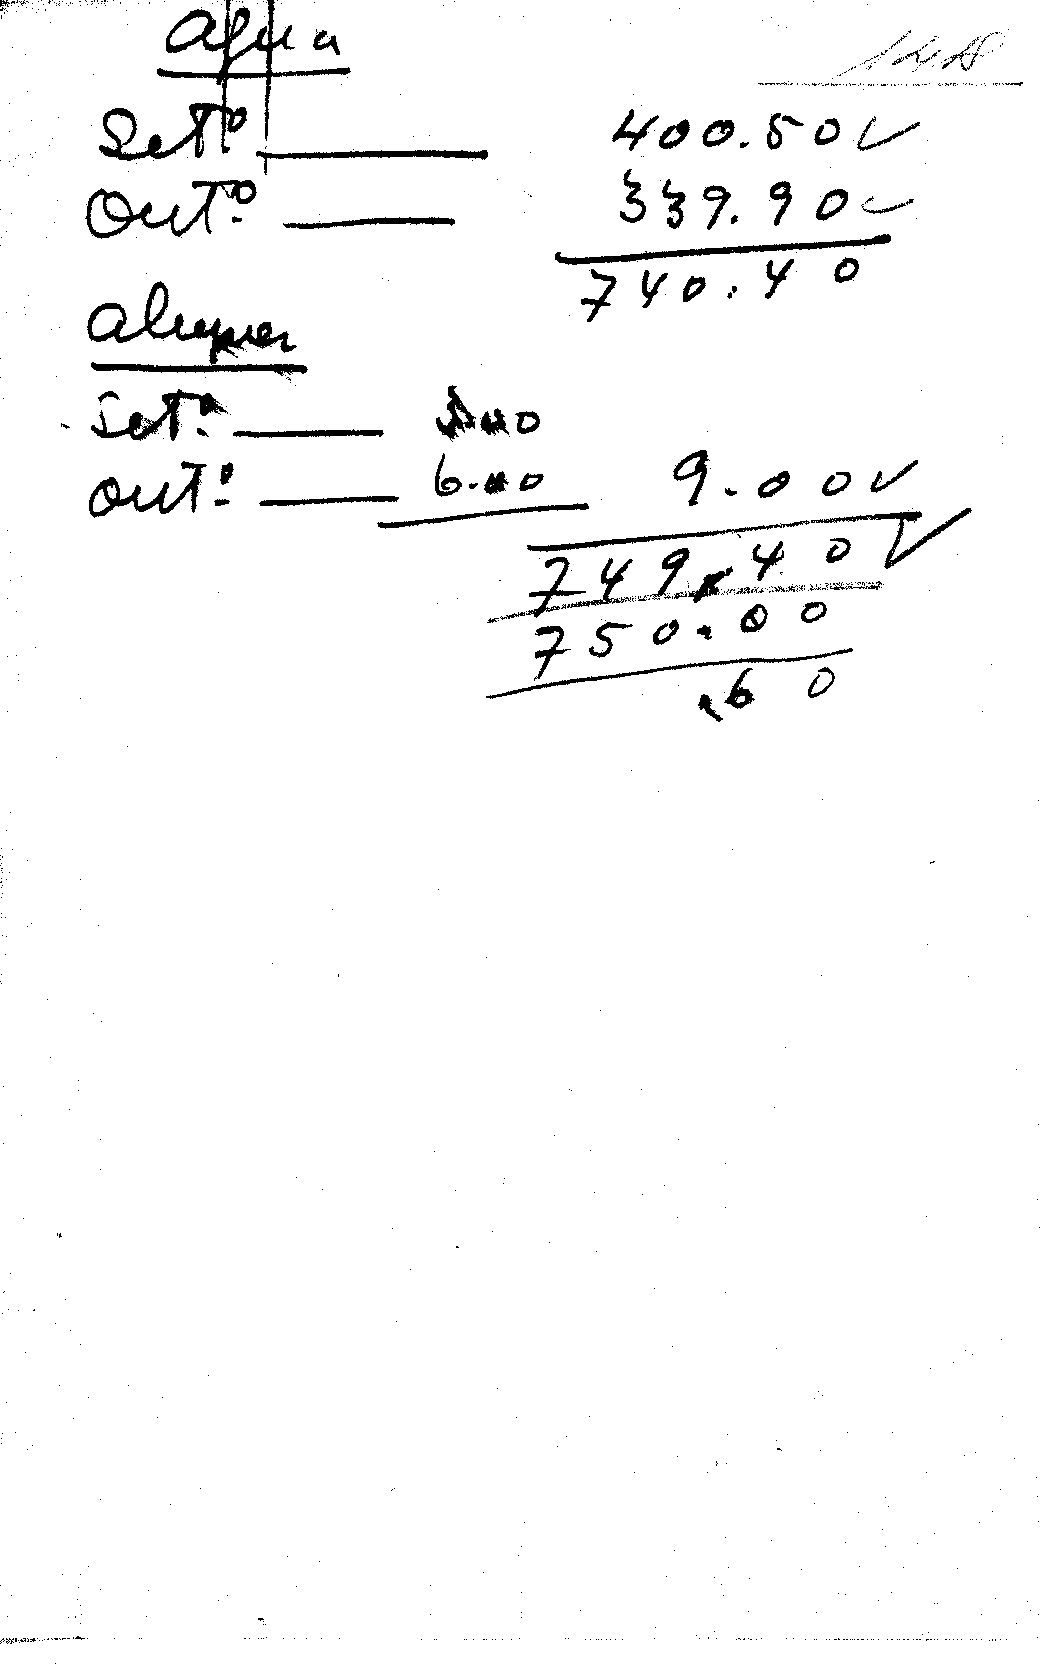 Agua
148
Set.º 400.50
Out.º 339.90
740.40
Aluguer
Set.º
Out.º 6.00 9.00
749.40
750.00
.60